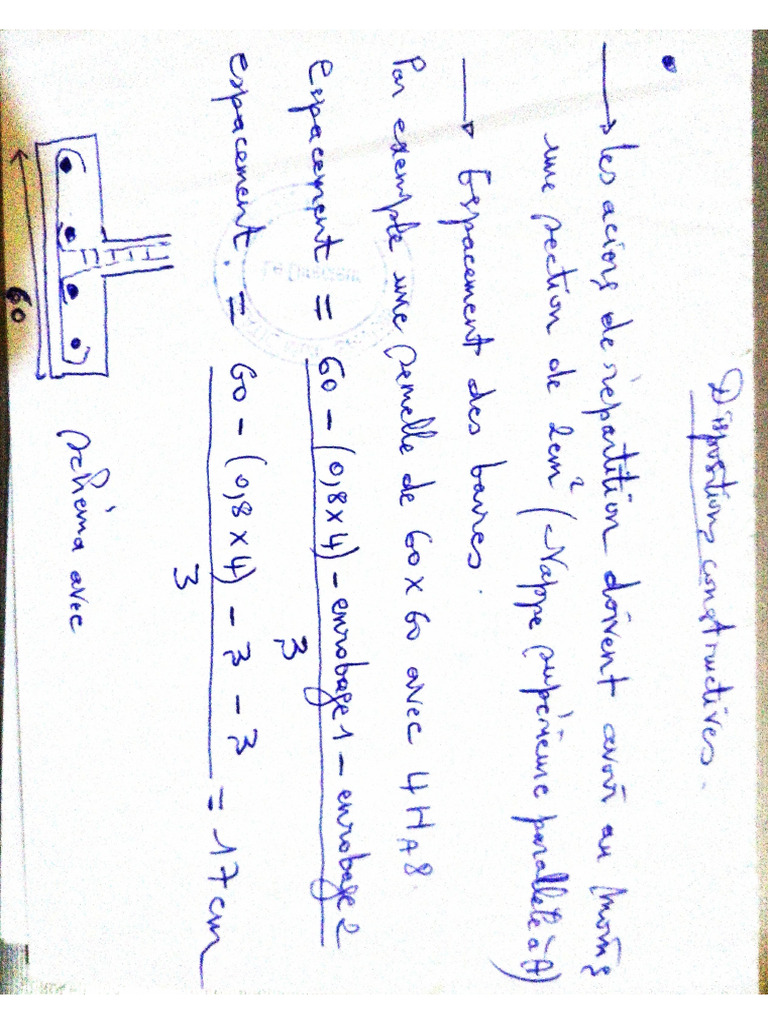 Dispositions constructives.
→ Les aciers de répartition doivent avoir au moins
une section de 2cm² (Nappe supérieure parallèle à A)
→ Espacement des barres.
Par exemple une semelle de 60 x 60 avec 4 HA8.
Espacement = 60 - (0,8 x 4) - enrobage 1 - enrobage 2
3
espacement = 60 - (0,8 x 4) - 3 - 3 = 17 cm
3
60
schéma avec
Le Directeur